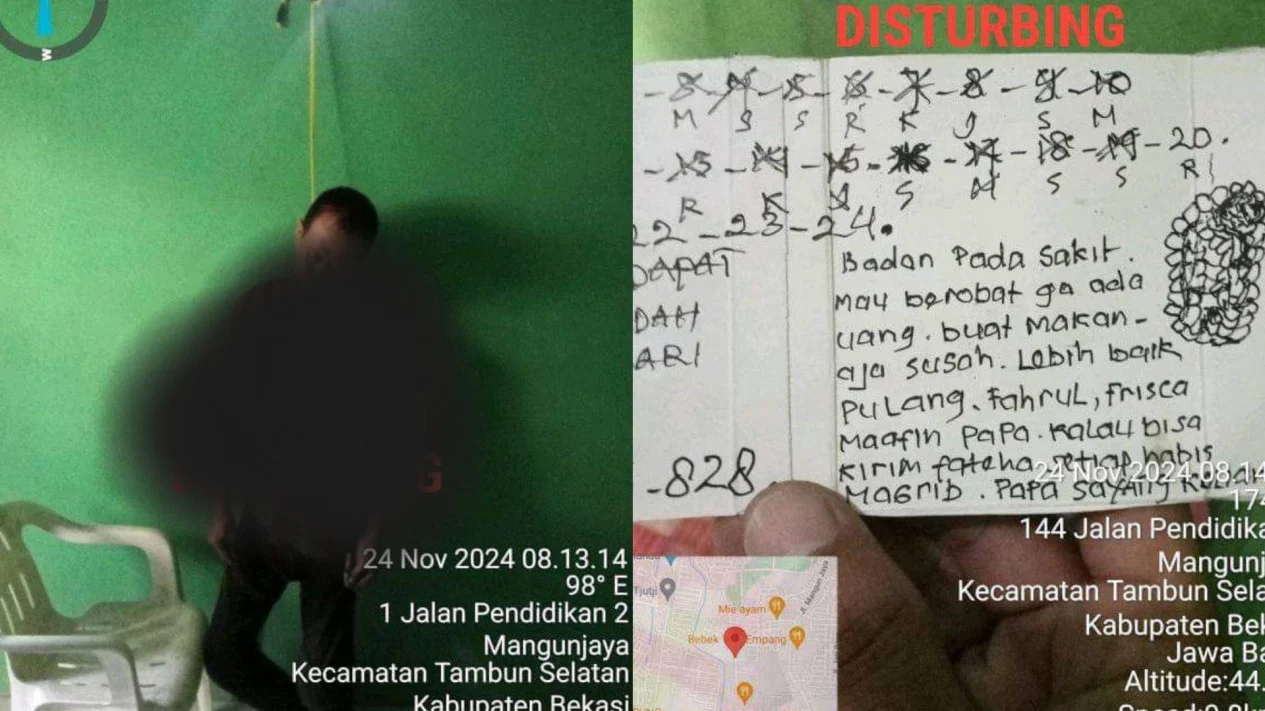 W
24 Nov 2024 08.13.14
98° E
1 Jalan Pendidikan 2
Mangunjaya
Kecamatan Tambun Selatan
Kabupaten Bekasi
DISTURBING
M S S R K J S M
20.
R K J S M S S R
22-23-24.
DAPAT
DAH
ARI
-828.
Badan Pada Sakit.
mau berobat ga ada
uang. buat makan-
aja susah. Lebih baik
pulang. Fahrul, Frisca
maafin Papa. kalau bisa
kirim fateha setiap habis
Magrib. Papa sayang
24 Nov 2024 08.14
174
144 Jalan Pendidika
Mangunj
Kecamatan Tambun Sela
Kabupaten Bek
Jawa Ba
Altitude:44.
Mie ayam
Bebek Empang
Jl. Mangun Jaya